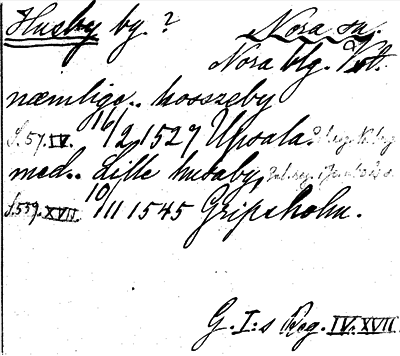 Husby by. ? Nora sn.
Nora blg. Vstl.
næmlige.. hosszeby
S. 57. IV. 16/2 1527 Upsala.
med.. Litle husaby,
S. 559. XVII. 10/11 1545 Gripsholm.
G. I:s Reg. IV. XVII.